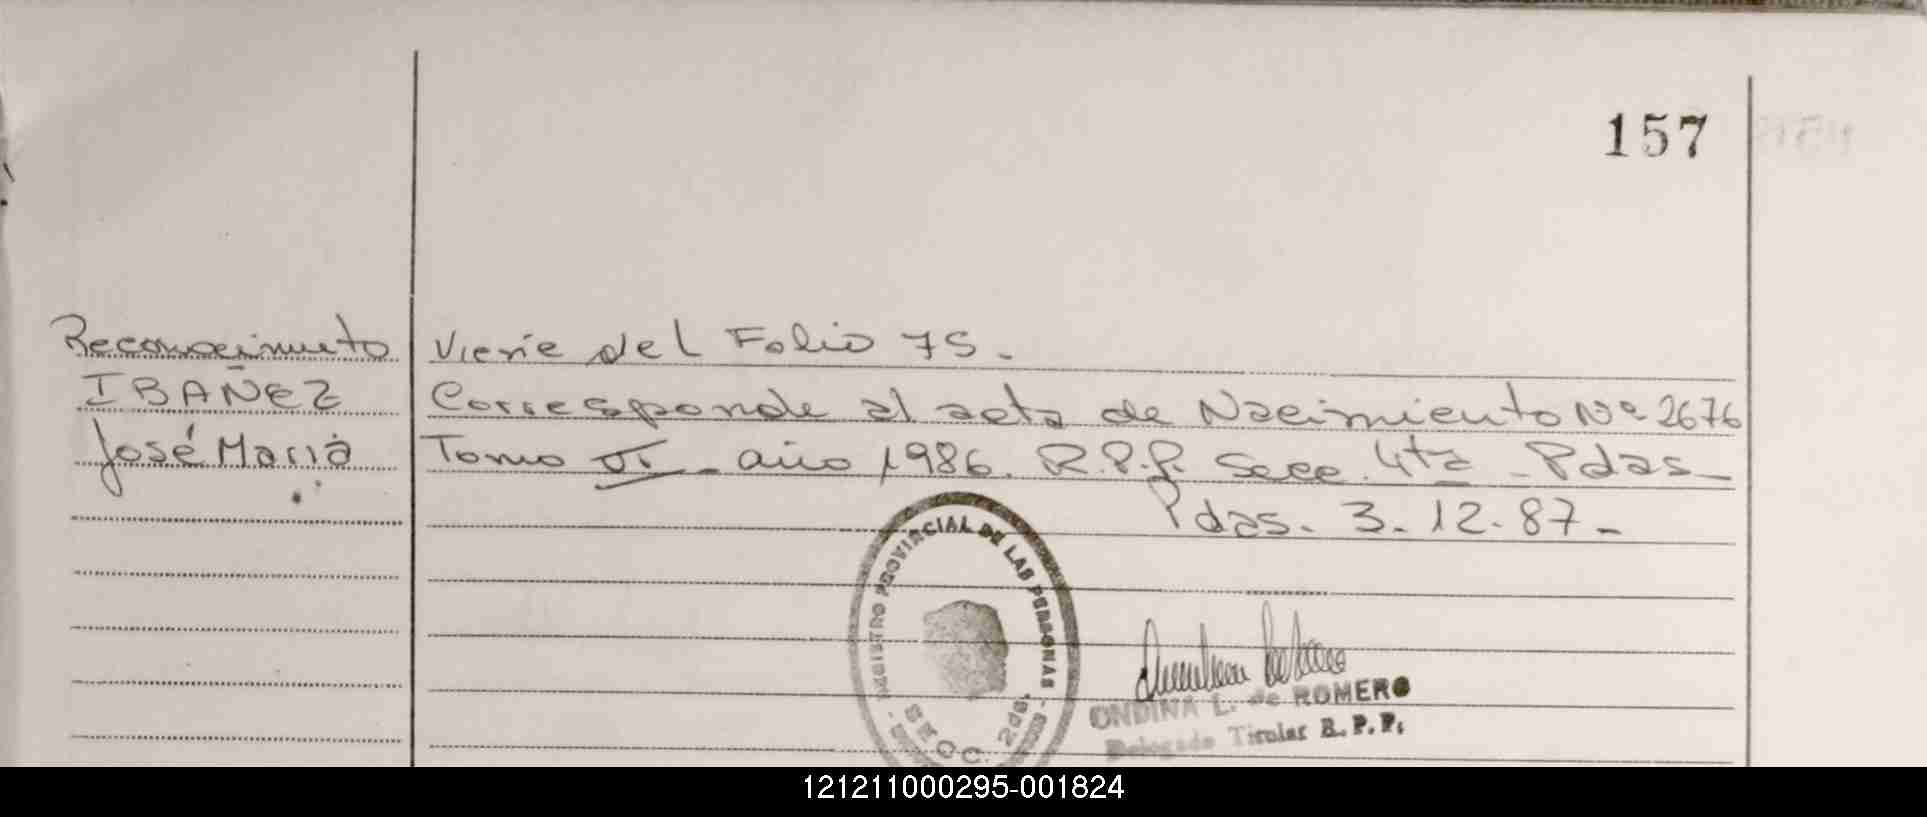 157
Reconocimieto
IBAÑEZ
José María
Viene del Folio 75.
Corresponde al acta de Nacimiento Nº 2676
Tomo VI - año 1986. R.P.P. Secc. 4ta - Pdas -
Pdas. 3.12.87 -
REGISTRO PROVINCIAL DE LAS PERSONAS
SECC. 2da.
ONDINA L. de ROMERO
Delegado Titular R. P. P.
121211000295-001824